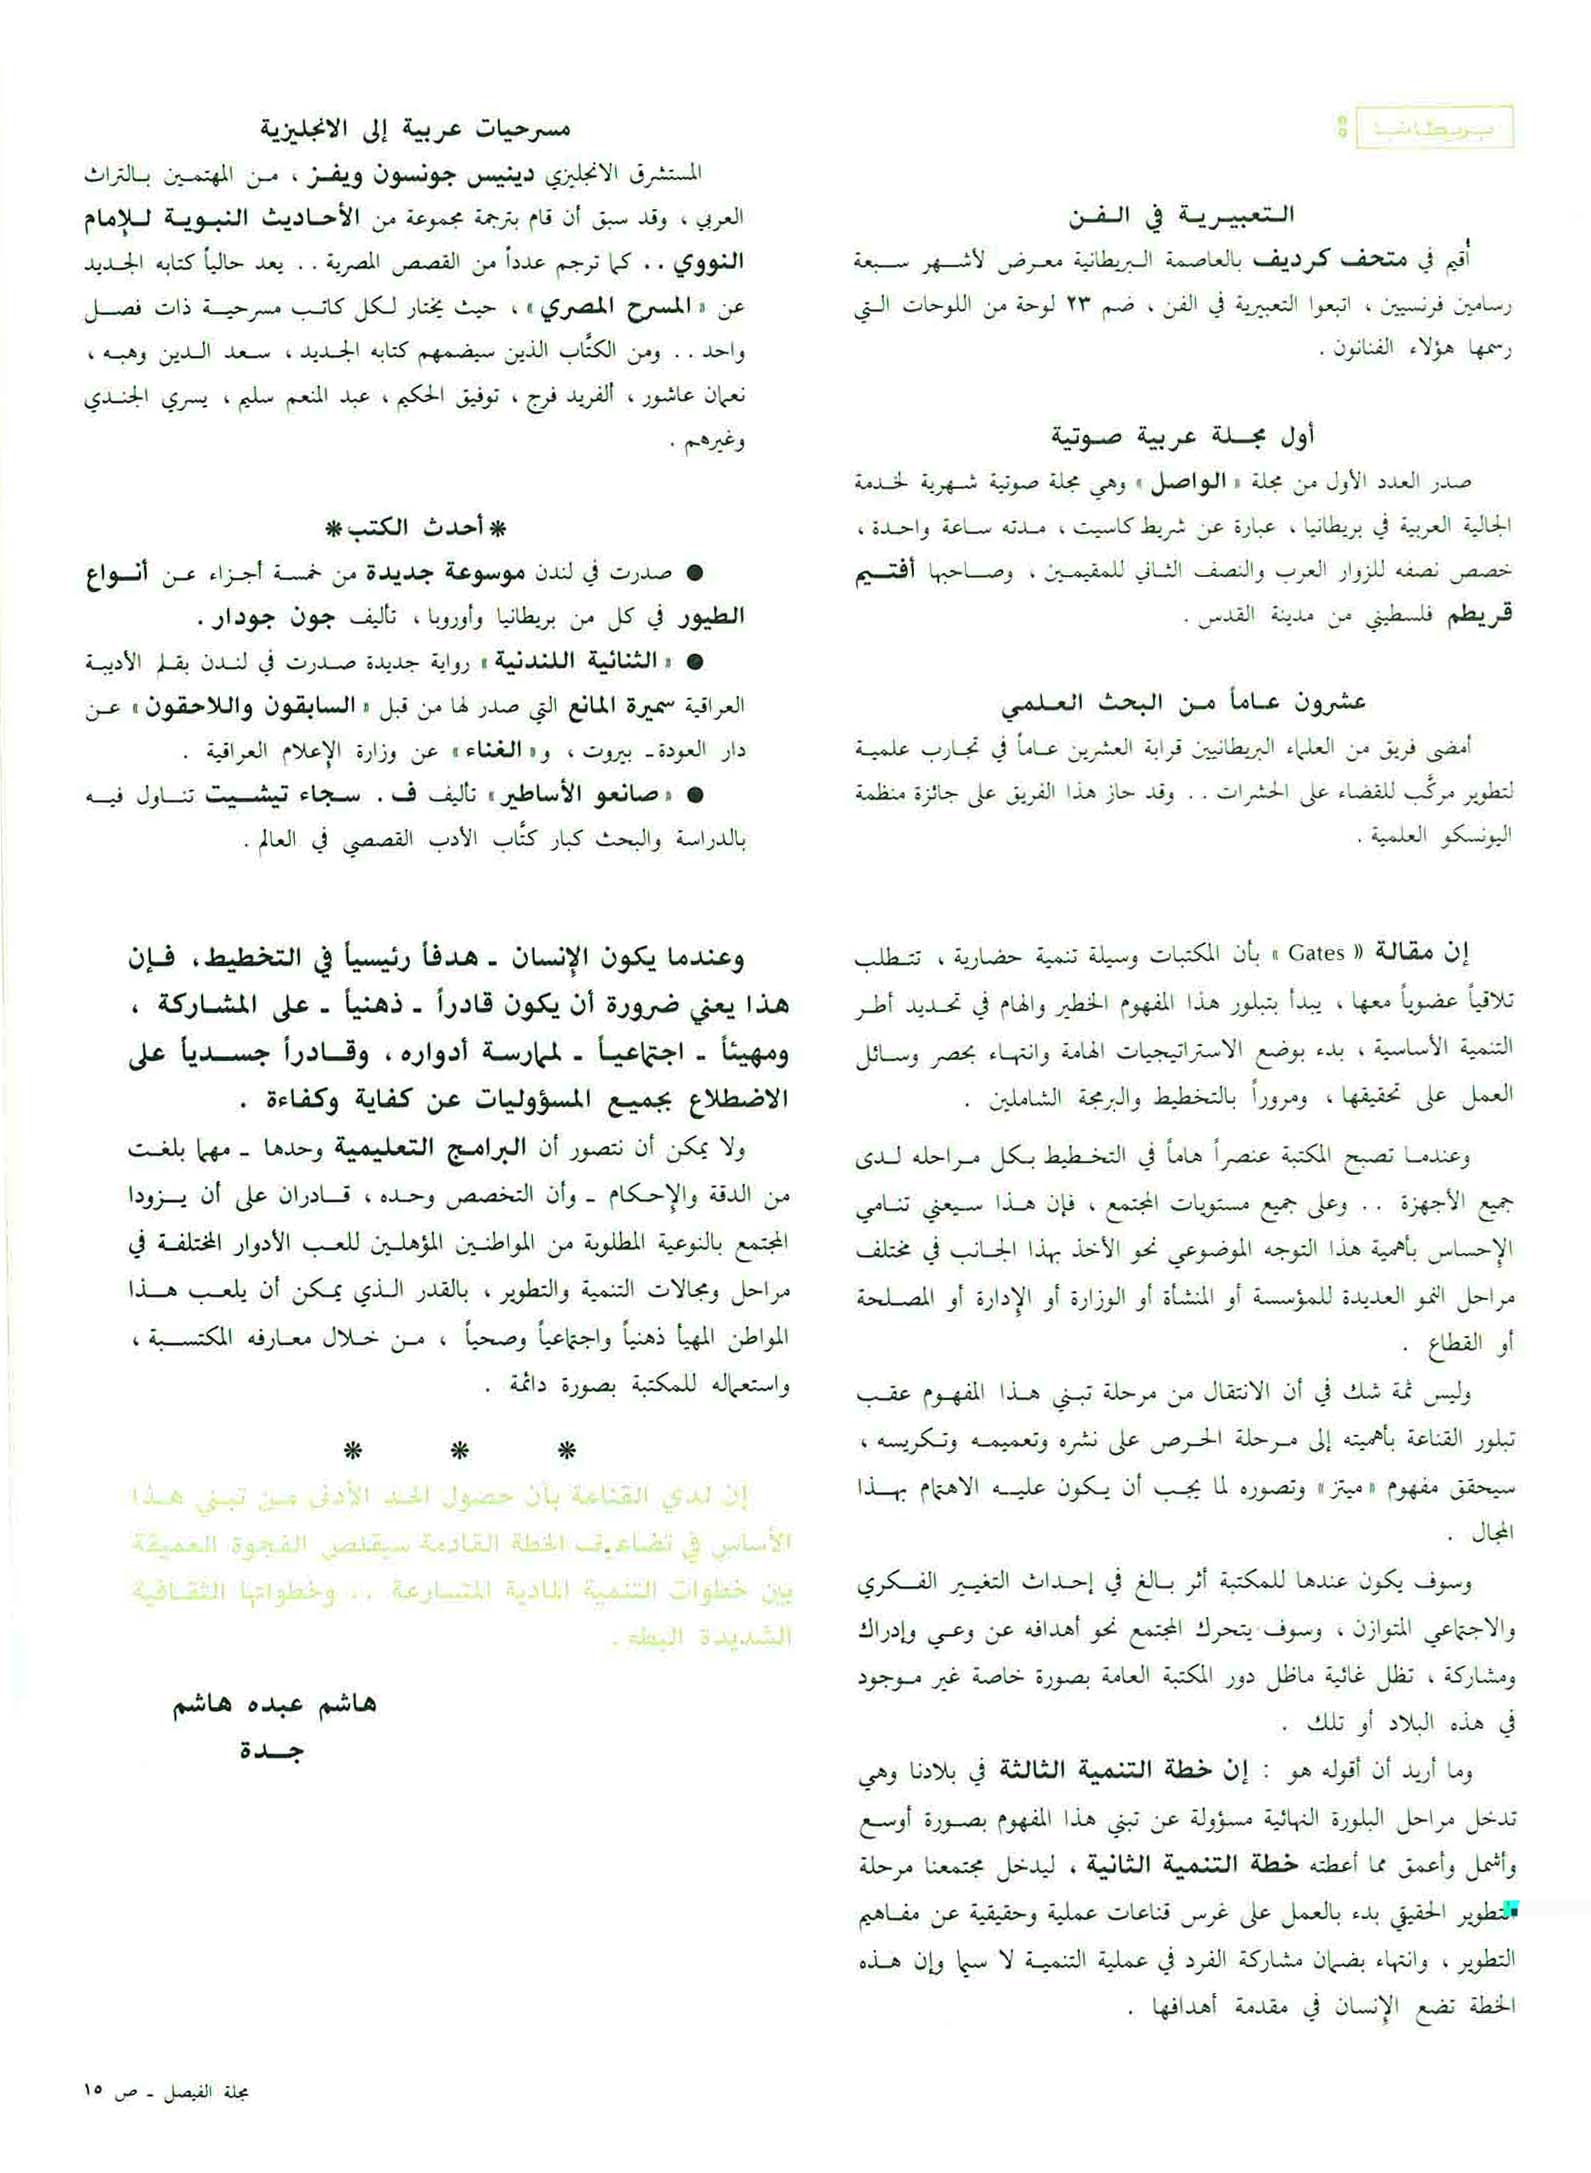 بريطانيا :
التعبيرية في الفن
أُقيم في متحف كرديف بالعاصمة البريطانية معرض لأشهر سبعة
رسامين فرنسيين ، اتبعوا التعبيرية في الفن ، ضم ٢٣ لوحة من اللوحات التي
رسمها هؤلاء الفنانون .
أول مجلة عربية صوتية
صدر العدد الأول من مجلة « الواصل » وهي مجلة صوتية شهرية لخدمة
الجالية العربية في بريطانيا ، عبارة عن شريط كاسيت ، مدته ساعة واحدة ،
خصص نصفه للزوار العرب والنصف الثاني للمقيمين ، وصاحبها أفتيم
قريطم فلسطيني من مدينة القدس .
عشرون عاماً من البحث العلمي
أمضى فريق من العلماء البريطانيين قرابة العشرين عاماً في تجارب علمية
لتطوير مركَّب للقضاء على الحشرات .. وقد حاز هذا الفريق على جائزة منظمة
اليونسكو العلمية .
مسرحيات عربية إلى الانجليزية
المستشرق الانجليزي دينيس جونسون ويفز ، من المهتمين بالتراث
العربي ، وقد سبق أن قام بترجمة مجموعة من الأحاديث النبوية للإمام
النووي .. كما ترجم عدداً من القصص المصرية .. يعد حالياً كتابه الجديد
عن « المسرح المصري » ، حيث يختار لكل كاتب مسرحية ذات فصل
واحد .. ومن الكتَّاب الذين سيضمهم كتابه الجديد ، سعد الدين وهبه ،
نعمان عاشور ، ألفريد فرج ، توفيق الحكيم ، عبد المنعم سليم ، يسري الجندي
وغيرهم .
* أحدث الكتب *
● صدرت في لندن موسوعة جديدة من خمسة أجزاء عن أنواع
الطيور في كل من بريطانيا وأوروبا ، تأليف جون جودار .
● « الثنائية اللندنية » رواية جديدة صدرت في لندن بقلم الأديبة
العراقية سميرة المانع التي صدر لها من قبل « السابقون واللاحقون » عن
دار العودة ـ بيروت ، و « الغناء » عن وزارة الإعلام العراقية .
● « صانعو الأساطير » تأليف ف . سجاء تيشيت تناول فيه
بالدراسة والبحث كبار كتَّاب الأدب القصصي في العالم .
إن مقالة « Gates » بأن المكتبات وسيلة تنمية حضارية ، تتطلب
تلاقياً عضوياً معها ، يبدأ بتبلور هذا المفهوم الخطير والهام في تحديد أطر
التنمية الأساسية ، بدء بوضع الاستراتيجيات الهامة وانتهاء بحصر وسائل
العمل على تحقيقها ، ومروراً بالتخطيط والبرمجة الشاملين .
وعندما تصبح المكتبة عنصراً هاماً في التخطيط بكل مراحله لدى
جميع الأجهزة .. وعلى جميع مستويات المجتمع ، فإن هذا سيعني تنامي
الإحساس بأهمية هذا التوجه الموضوعي نحو الأخذ بهذا الجانب في مختلف
مراحل النمو العديدة للمؤسسة أو المنشأة أو الوزارة أو الإدارة أو المصلحة
أو القطاع .
وليس ثمة شك في أن الانتقال من مرحلة تبني هذا المفهوم عقب
تبلور القناعة بأهميته إلى مرحلة الحرص على نشره وتعميمه وتكريسه ،
سيحقق مفهوم « ميتز » وتصوره لما يجب أن يكون عليه الاهتمام بهذا
المجال .
وسوف يكون عندها للمكتبة أثر بالغ في إحداث التغيير الفكري
والاجتماعي المتوازن ، وسوف يتحرك المجتمع نحو أهدافه عن وعي وإدراك
ومشاركة ، تظل غائية ماظل دور المكتبة العامة بصورة خاصة غير موجود
في هذه البلاد أو تلك .
وما أريد أن أقوله هو : إن خطة التنمية الثالثة في بلادنا وهي
تدخل مراحل البلورة النهائية مسؤولة عن تبني هذا المفهوم بصورة أوسع
وأشمل وأعمق مما أعطته خطة التنمية الثانية ، ليدخل مجتمعنا مرحلة
التطوير الحقيقي بدء بالعمل على غرس قناعات عملية وحقيقية عن مفاهيم
التطوير ، وانتهاء بضمان مشاركة الفرد في عملية التنمية لا سيما وإن هذه
الخطة تضع الإنسان في مقدمة أهدافها .
وعندما يكون الإنسان ـ هدفاً رئيسياً في التخطيط ، فإن
هذا يعني ضرورة أن يكون قادراً ـ ذهنياً ـ على المشاركة ،
ومهيئاً ـ اجتماعياً ـ لممارسة أدواره ، وقادراً جسدياً على
الاضطلاع بجميع المسؤوليات عن كفاية وكفاءة .
ولا يمكن أن نتصور أن البرامج التعليمية وحدها ـ مهما بلغت
من الدقة والإحكام ـ وأن التخصص وحده ، قادران على أن يزودا
المجتمع بالنوعية المطلوبة من المواطنين المؤهلين للعب الأدوار المختلفة في
مراحل ومجالات التنمية والتطوير ، بالقدر الذي يمكن أن يلعب هذا
المواطن المهيأ ذهنياً واجتماعياً وصحياً ، من خلال معارفه المكتسبة ،
واستعماله للمكتبة بصورة دائمة .
* * *
إن لدي القناعة بأن حصول الحد الأدنى من تبني هذا
الأساس في تضاعيف الخطة القادمة سيقلص الفجوة العميقة
بين خطوات التنمية المادية المتسارعة .. وخطواتها الثقافية
الشديدة البطء .
هاشم عبده هاشم
جدة
مجلة الفيصل ـ ص ١٥